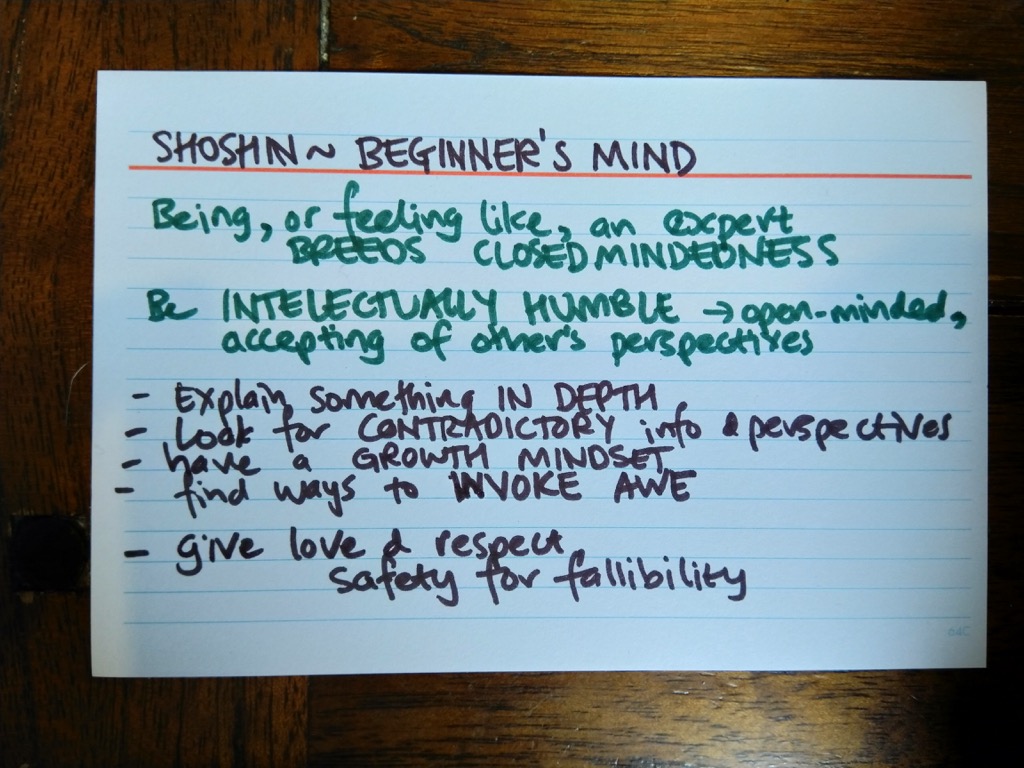 SHOSHIN ~ BEGINNER'S MIND
Being, or feeling like, an expert
BREEDS CLOSEDMINDEDNESS
Be INTELECTUALLY HUMBLE → open-minded,
accepting of other's perspectives
- Explain something IN DEPTH
- Look for CONTRADICTORY info & perspectives
- have a GROWTH MINDSET
- find ways to INVOKE AWE
- give love & respect
safety for fallibility